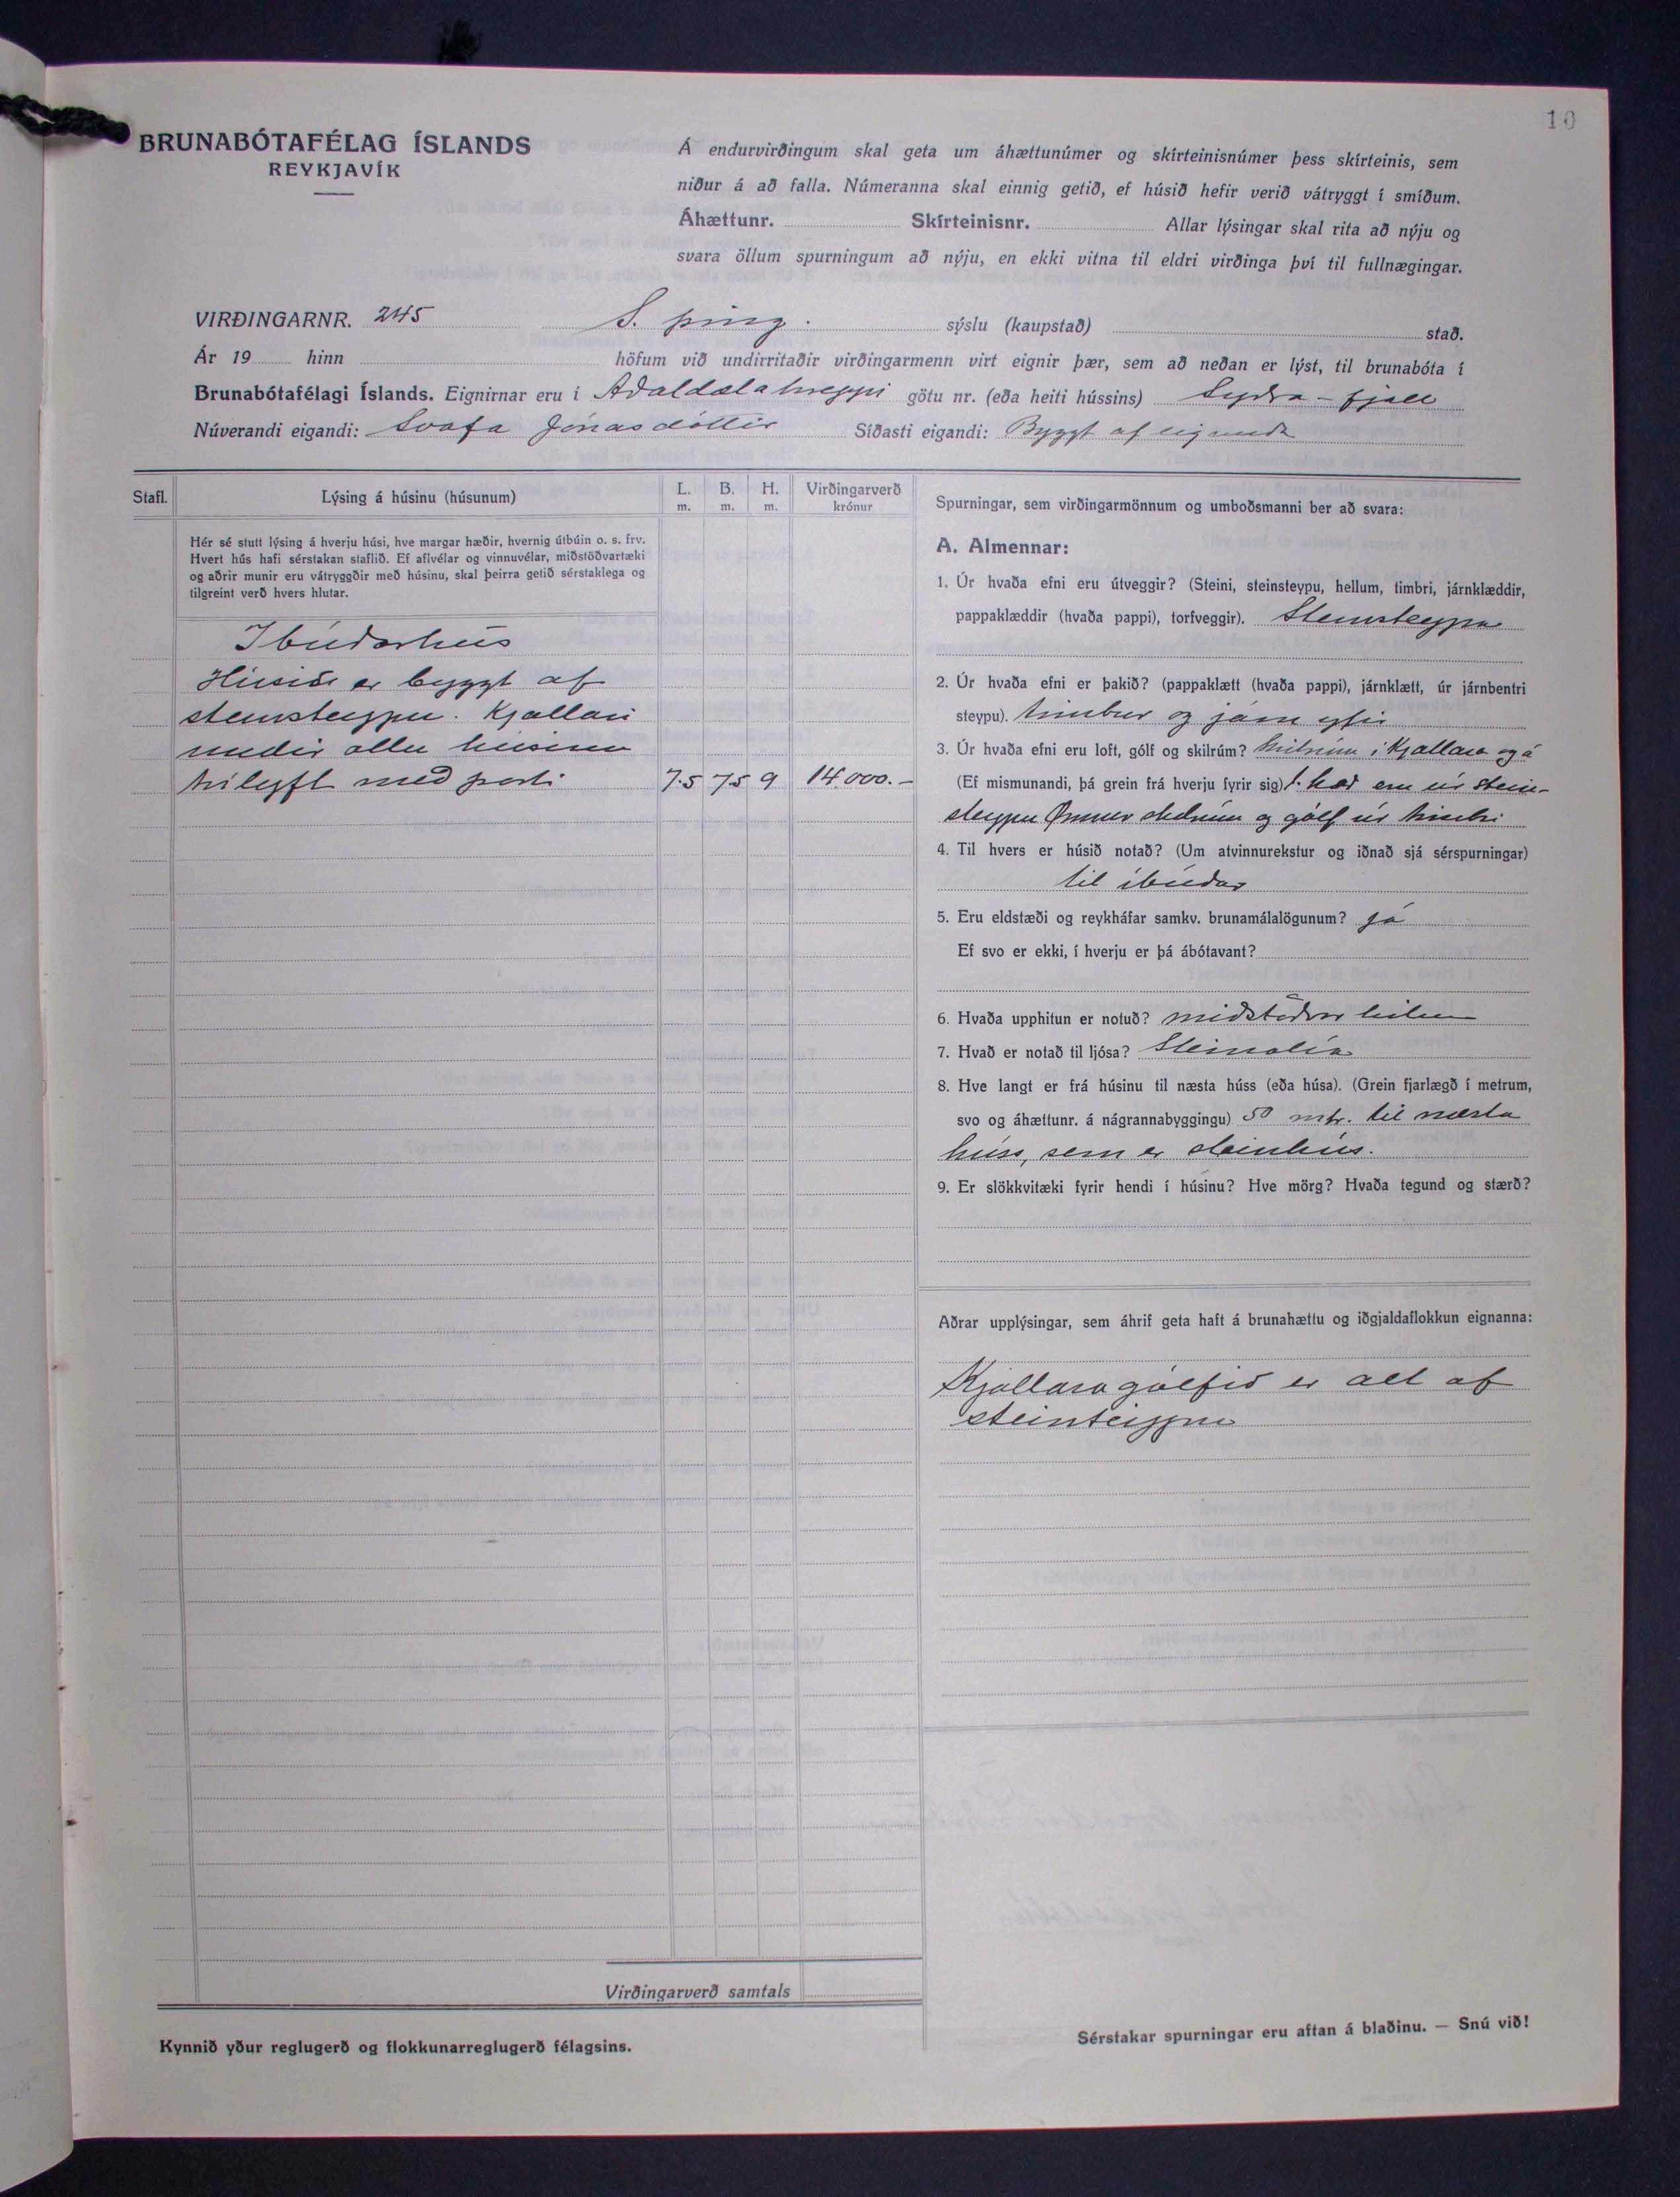 10
BRUNABÓTAFÉLAG ÍSLANDS
REYKJAVÍK
Á endurvirðingum skal geta um áhættunúmer og skírteinisnúmer þess skírteinis, sem
niður á að falla. Númeranna skal einnig getið, ef húsið hefir verið vátryggt í smíðum.
Áhættunr. Skírteinisnr. Allar lýsingar skal rita að nýju og
svara öllum spurningum að nýju, en ekki vitna til eldri virðinga því til fullnægingar.
VIRÐINGARNR. 245 S. þing. sýslu (kaupstað) stað.
Ár 19 hinn höfum við undirritaðir virðingarmenn virt eignir þær, sem að neðan er lýst, til brunabóta í
Brunabótafélagi Íslands. Eignirnar eru í Aðaldælahreppi götu nr. (eða heiti hússins) Syðra-fjall
Núverandi eigandi: Svafa Jónasdóttir Síðasti eigandi: Byggt af eiganda
Stafl. Lýsing á húsinu (húsunum) L. m. B. m. H. m. Virðingarverð krónur
Hér sé stutt lýsing á hverju húsi, hve margar hæðir, hvernig útbúin o. s. frv.
Hvert hús hafi sérstakan staflið. Ef aflvélar og vinnuvélar, miðstöðvartæki
og aðrir munir eru vátryggðir með húsinu, skal þeirra getið sérstaklega og
tilgreint verð hvers hlutar.
Íbúðarhús
Húsið er byggt af
steinsteypu. Kjallari
undir öllu húsinu
tvílyft með porti 7.5 7.5 9 14.000.-
Virðingarverð samtals
Kynnið yður reglugerð og flokkunarreglugerð félagsins.
Spurningar, sem virðingarmönnum og umboðsmanni ber að svara:
A. Almennar:
1. Úr hvaða efni eru útveggir? (Steini, steinsteypu, hellum, timbri, járnklæddir,
pappaklæddir (hvaða pappi), torfveggir). Steinsteypu
2. Úr hvaða efni er þakið? (pappaklætt (hvaða pappi), járnklætt, úr járnbentri
steypu). timbur og járn yfir
3. Úr hvaða efni eru loft, gólf og skilrúm? Skilrúm í Kjallara og á
(Ef mismunandi, þá grein frá hverju fyrir sig) 1. hæð eru úr stein-
steypu Önnur skilrúm og gólf úr timbri
4. Til hvers er húsið notað? (Um atvinnurekstur og iðnað sjá sérspurningar)
til íbúðar
5. Eru eldstæði og reykháfar samkv. brunamálalögunum? já
Ef svo er ekki, í hverju er þá ábótavant?
6. Hvaða upphitun er notuð? miðstöðvar hitun
7. Hvað er notað til ljósa? Steinolía
8. Hve langt er frá húsinu til næsta húss (eða húsa). (Grein fjarlægð í metrum,
svo og áhættunr. á nágrannabyggingu) 50 mtr. til næsta
húss, sem er steinhús.
9. Er slökkvitæki fyrir hendi í húsinu? Hve mörg? Hvaða tegund og stærð?
Aðrar upplýsingar, sem áhrif geta haft á brunahættu og iðgjaldaflokkun eignanna:
Kjallaragólfið er allt af
steinteypu
Sérstakar spurningar eru aftan á blaðinu. — Snú við!